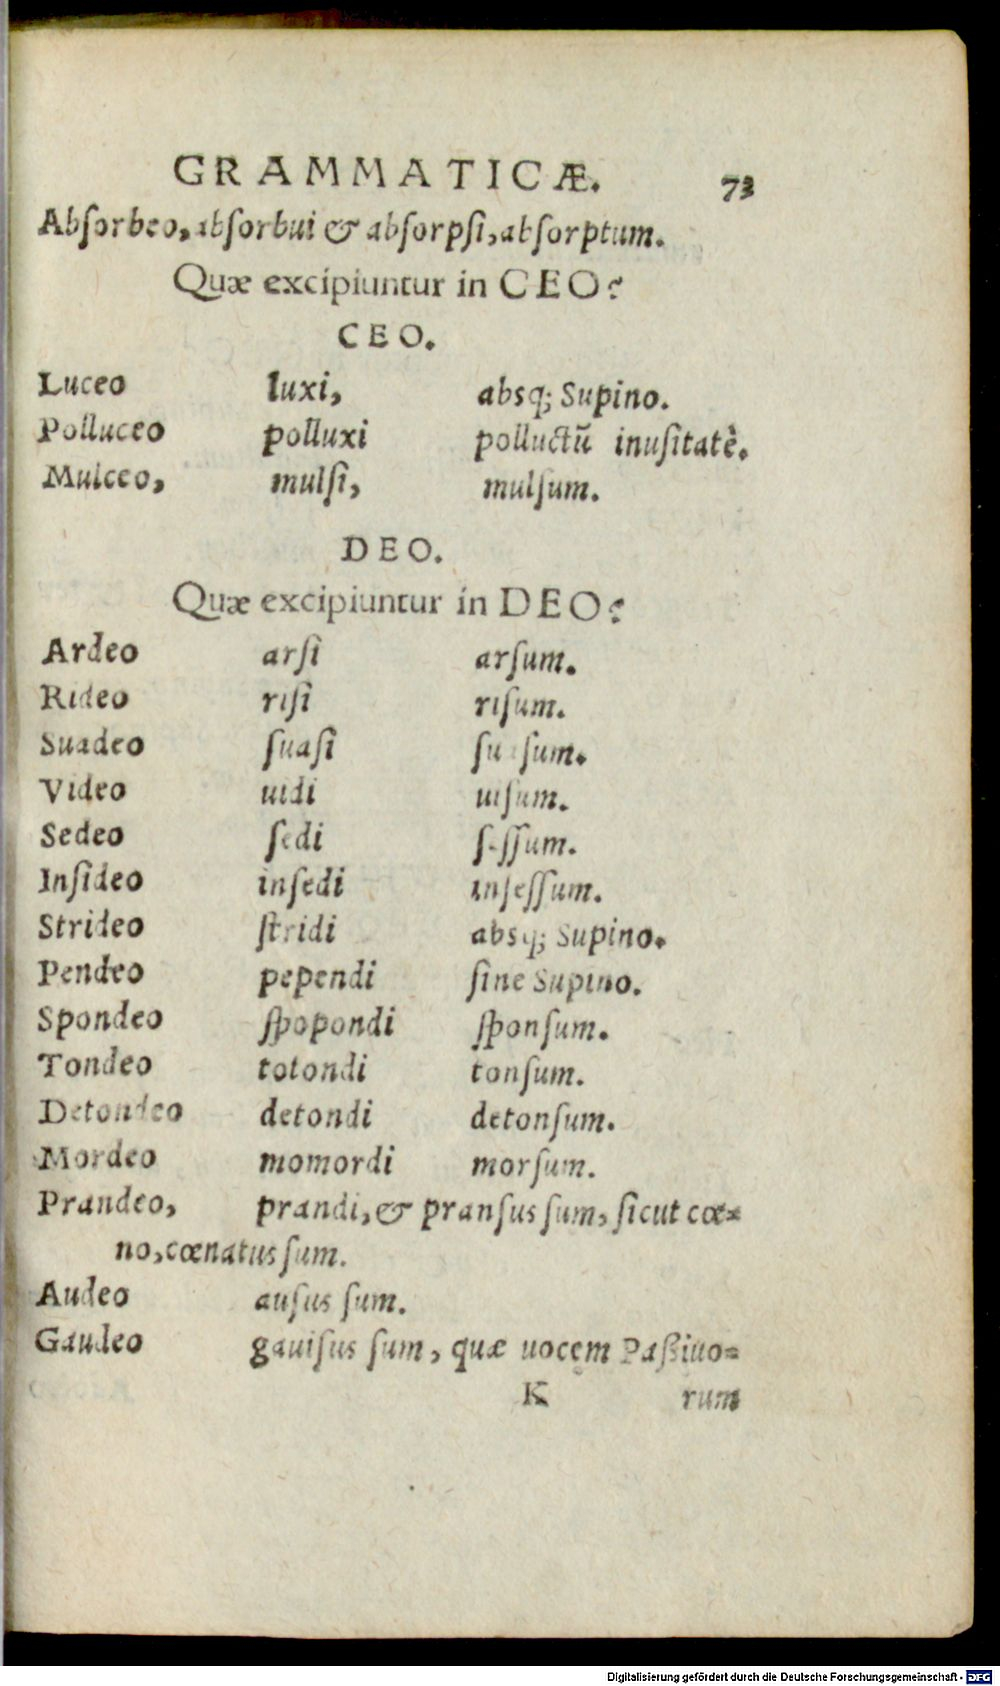 GRAMMATICÆ. 73
Abſorbeo, abſorbui & abſorpſi, abſorptum.
Quæ excipiuntur in CEO?
CEO.
Luceo luxi, absq; Supino.
Polluceo polluxi polluctū inuſitatè.
Mulceo, mulſi, mulſum.
DEO.
Quæ excipiuntur in DEO?
Ardeo arſi arſum.
Rideo riſi riſum.
Suadeo ſuaſi ſuaſum.
Video uidi uiſum.
Sedeo ſedi ſeſſum.
Inſideo inſedi inſeſſum.
Strideo ſtridi absq; Supino.
Pendeo pependi ſine Supino.
Spondeo ſpopondi ſponſum.
Tondeo totondi tonſum.
Detondeo detondi detonſum.
Mordeo momordi morſum.
Prandeo, prandi, & pranſus ſum, ſicut cœ=
no, cœnatus ſum.
Audeo auſus ſum.
Gaudeo gauiſus ſum, quæ uocem Paßiuo=
K rum
Digitalisierung gefördert durch die Deutsche Forschungsgemeinschaft - DFG